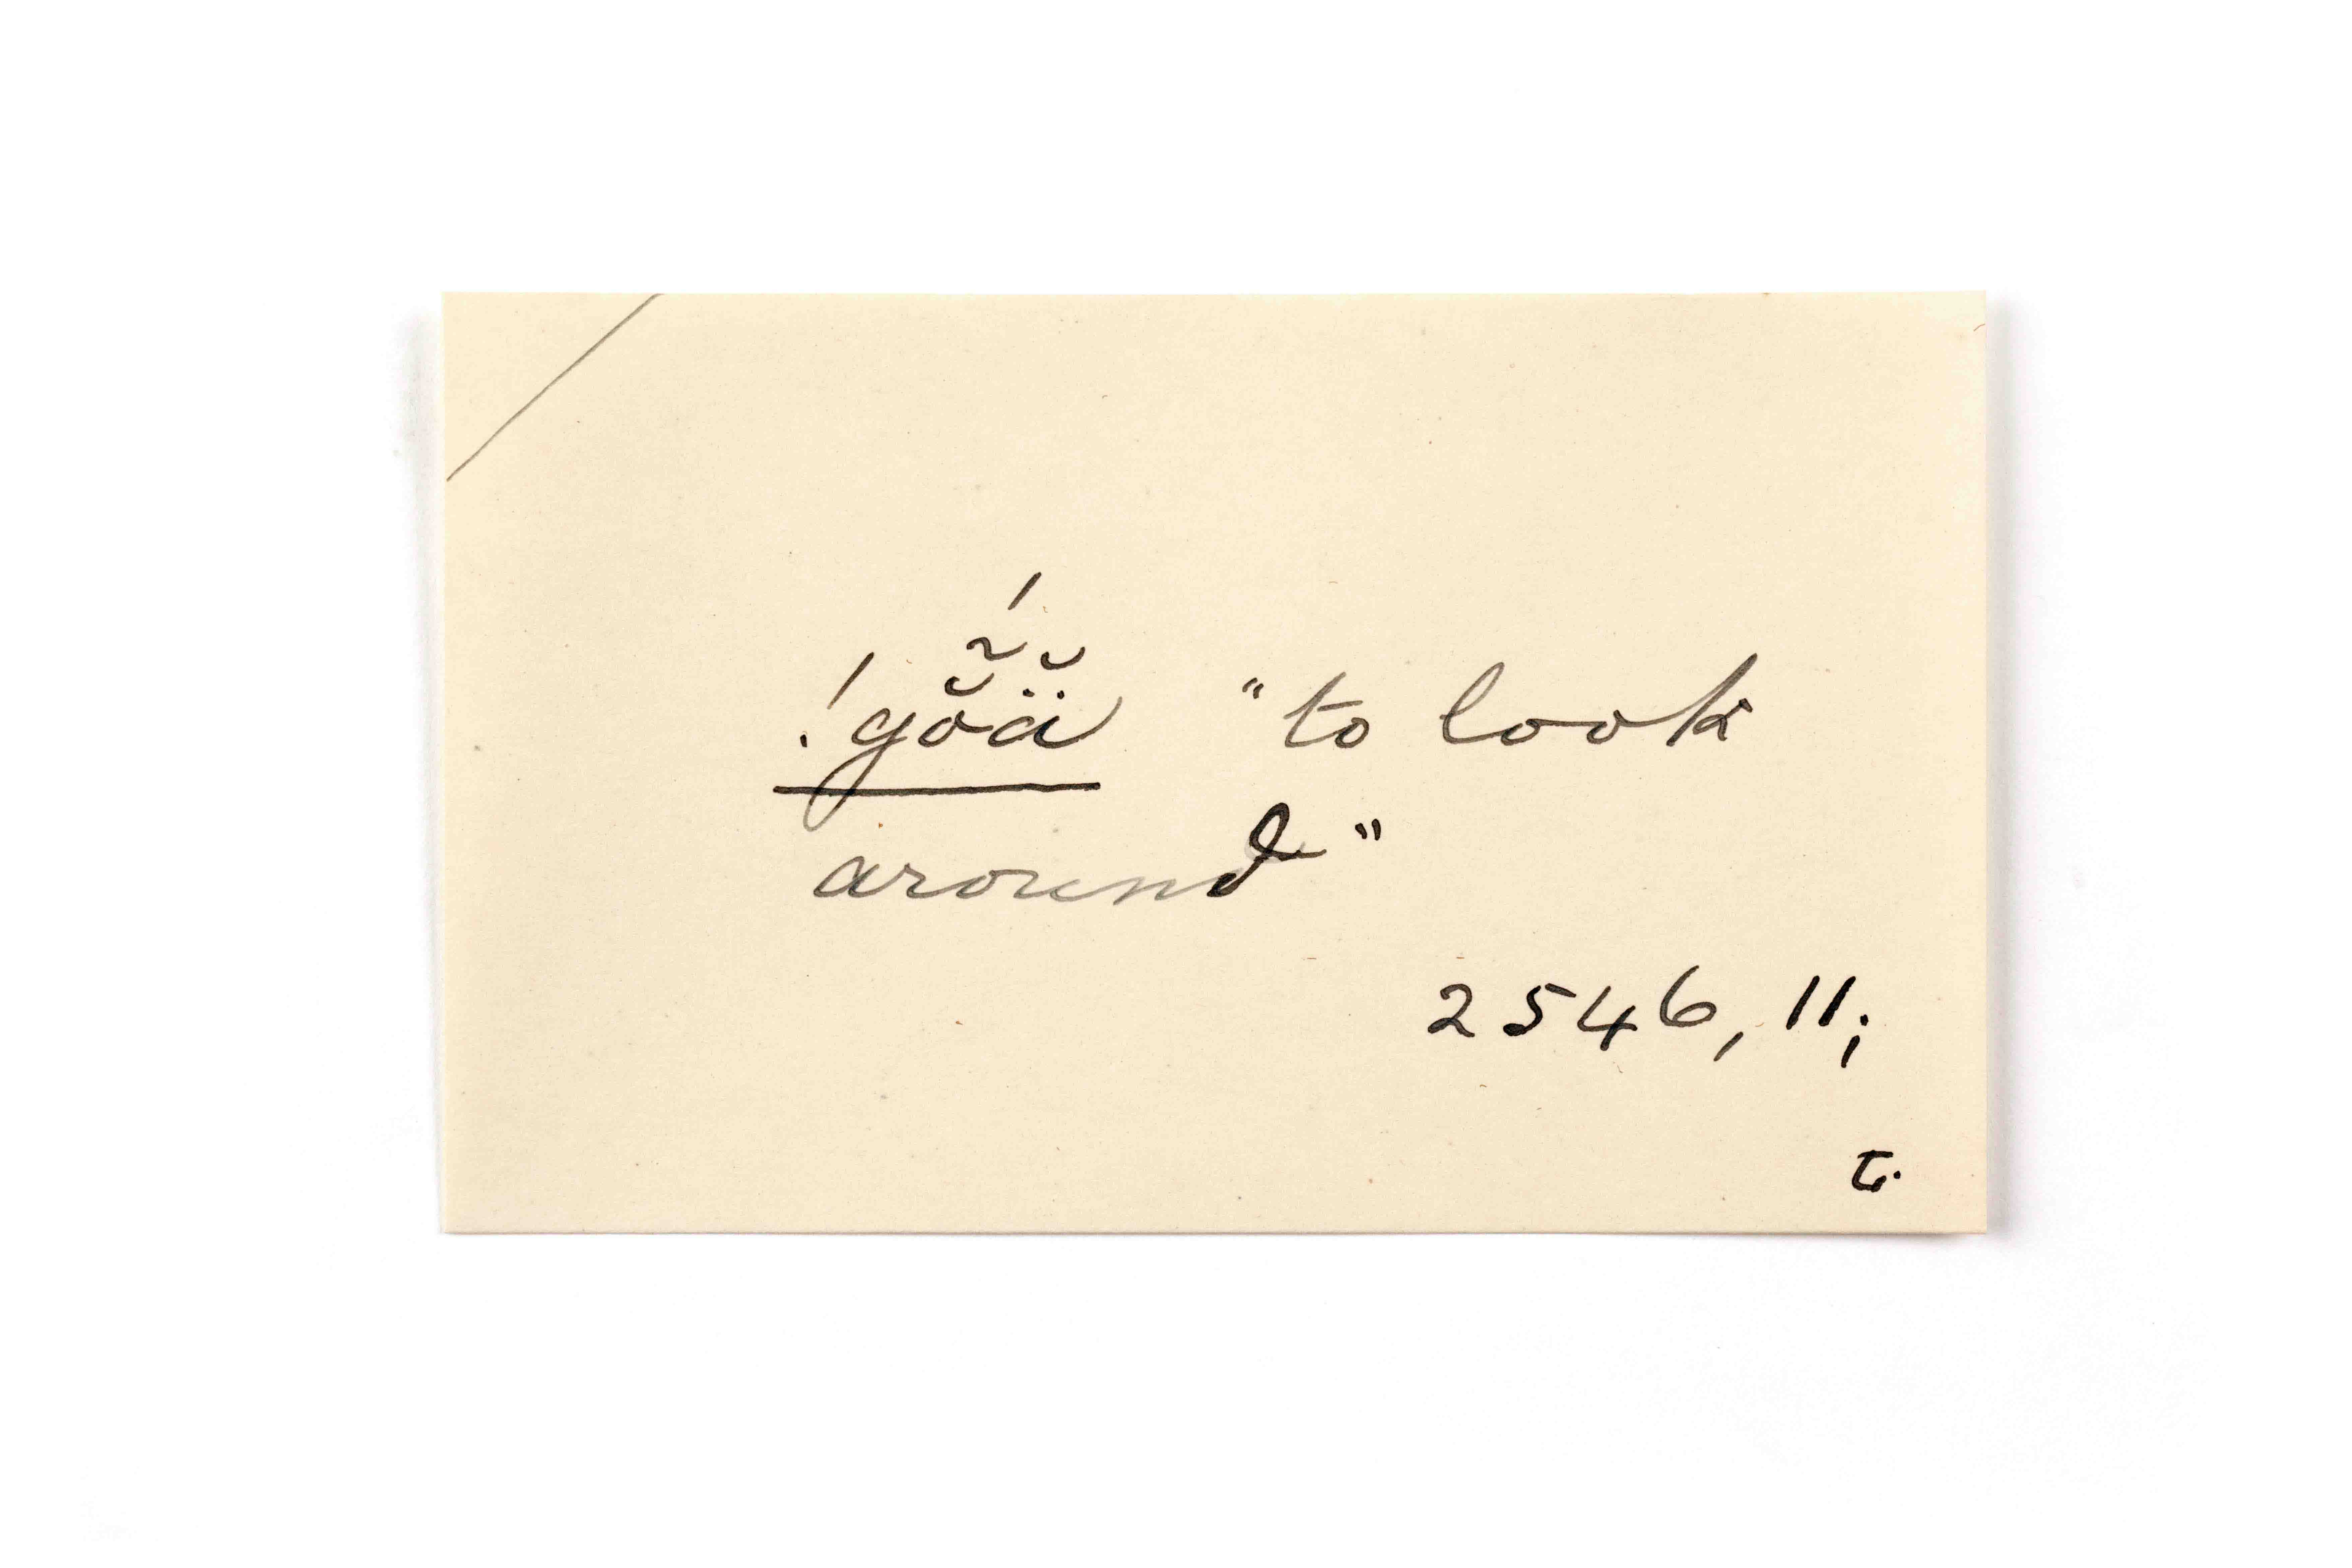 !gŏ̃́ä̆ "to look
around"
2546, 11;
t.